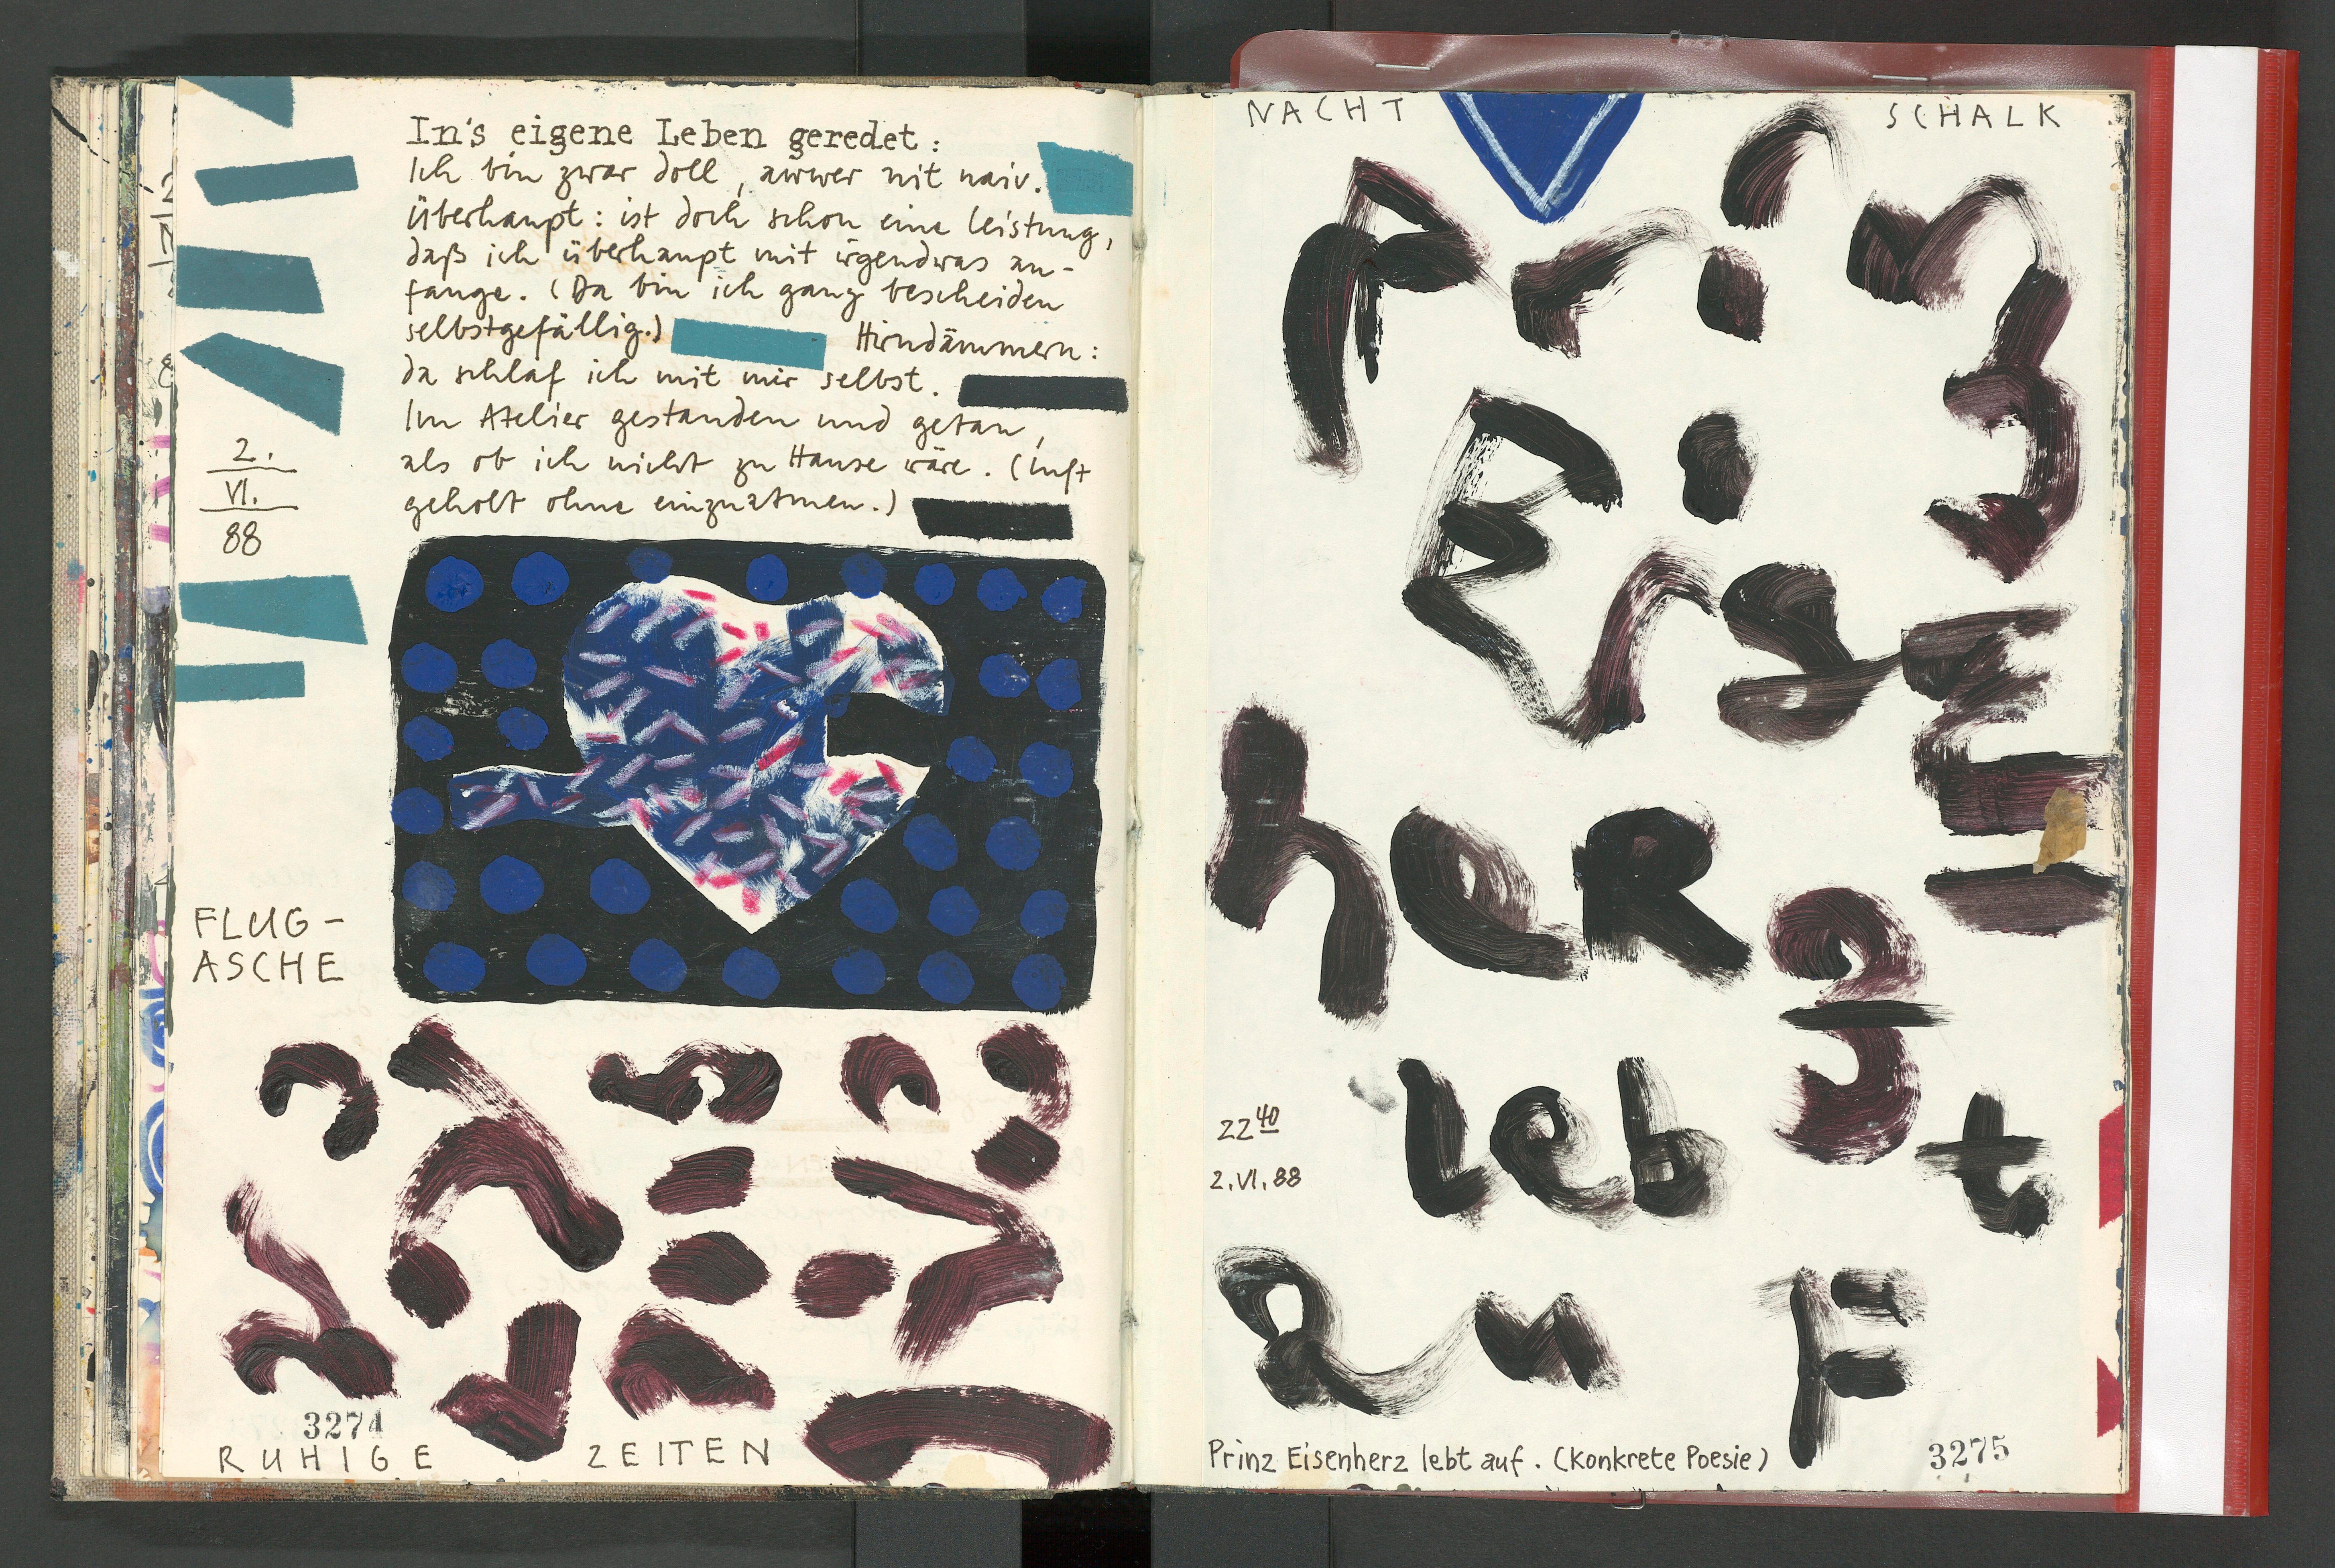 In's eigene Leben geredet:
Ich bin zwar doll, awwer nit naiv.
Überhaupt: ist doch schon eine Leistung,
daß ich überhaupt mit irgendwas an-
fange. (Da bin ich ganz bescheiden
selbstgefällig.) Hirndämmern:
da schlaf ich mit mir selbst.
Im Atelier gestanden und getan,
als ob ich nicht zu Hause wäre. (Luft
geholt ohne einzuatmen.)
2.
VI.
88
FLUG-
ASCHE
3274
RUHIGE ZEITEN
NACHT SCHALK
Prinz
Eisen
herz
lebt
22 40
2.VI.88
auF
Prinz Eisenherz lebt auf. (Konkrete Poesie)
3275